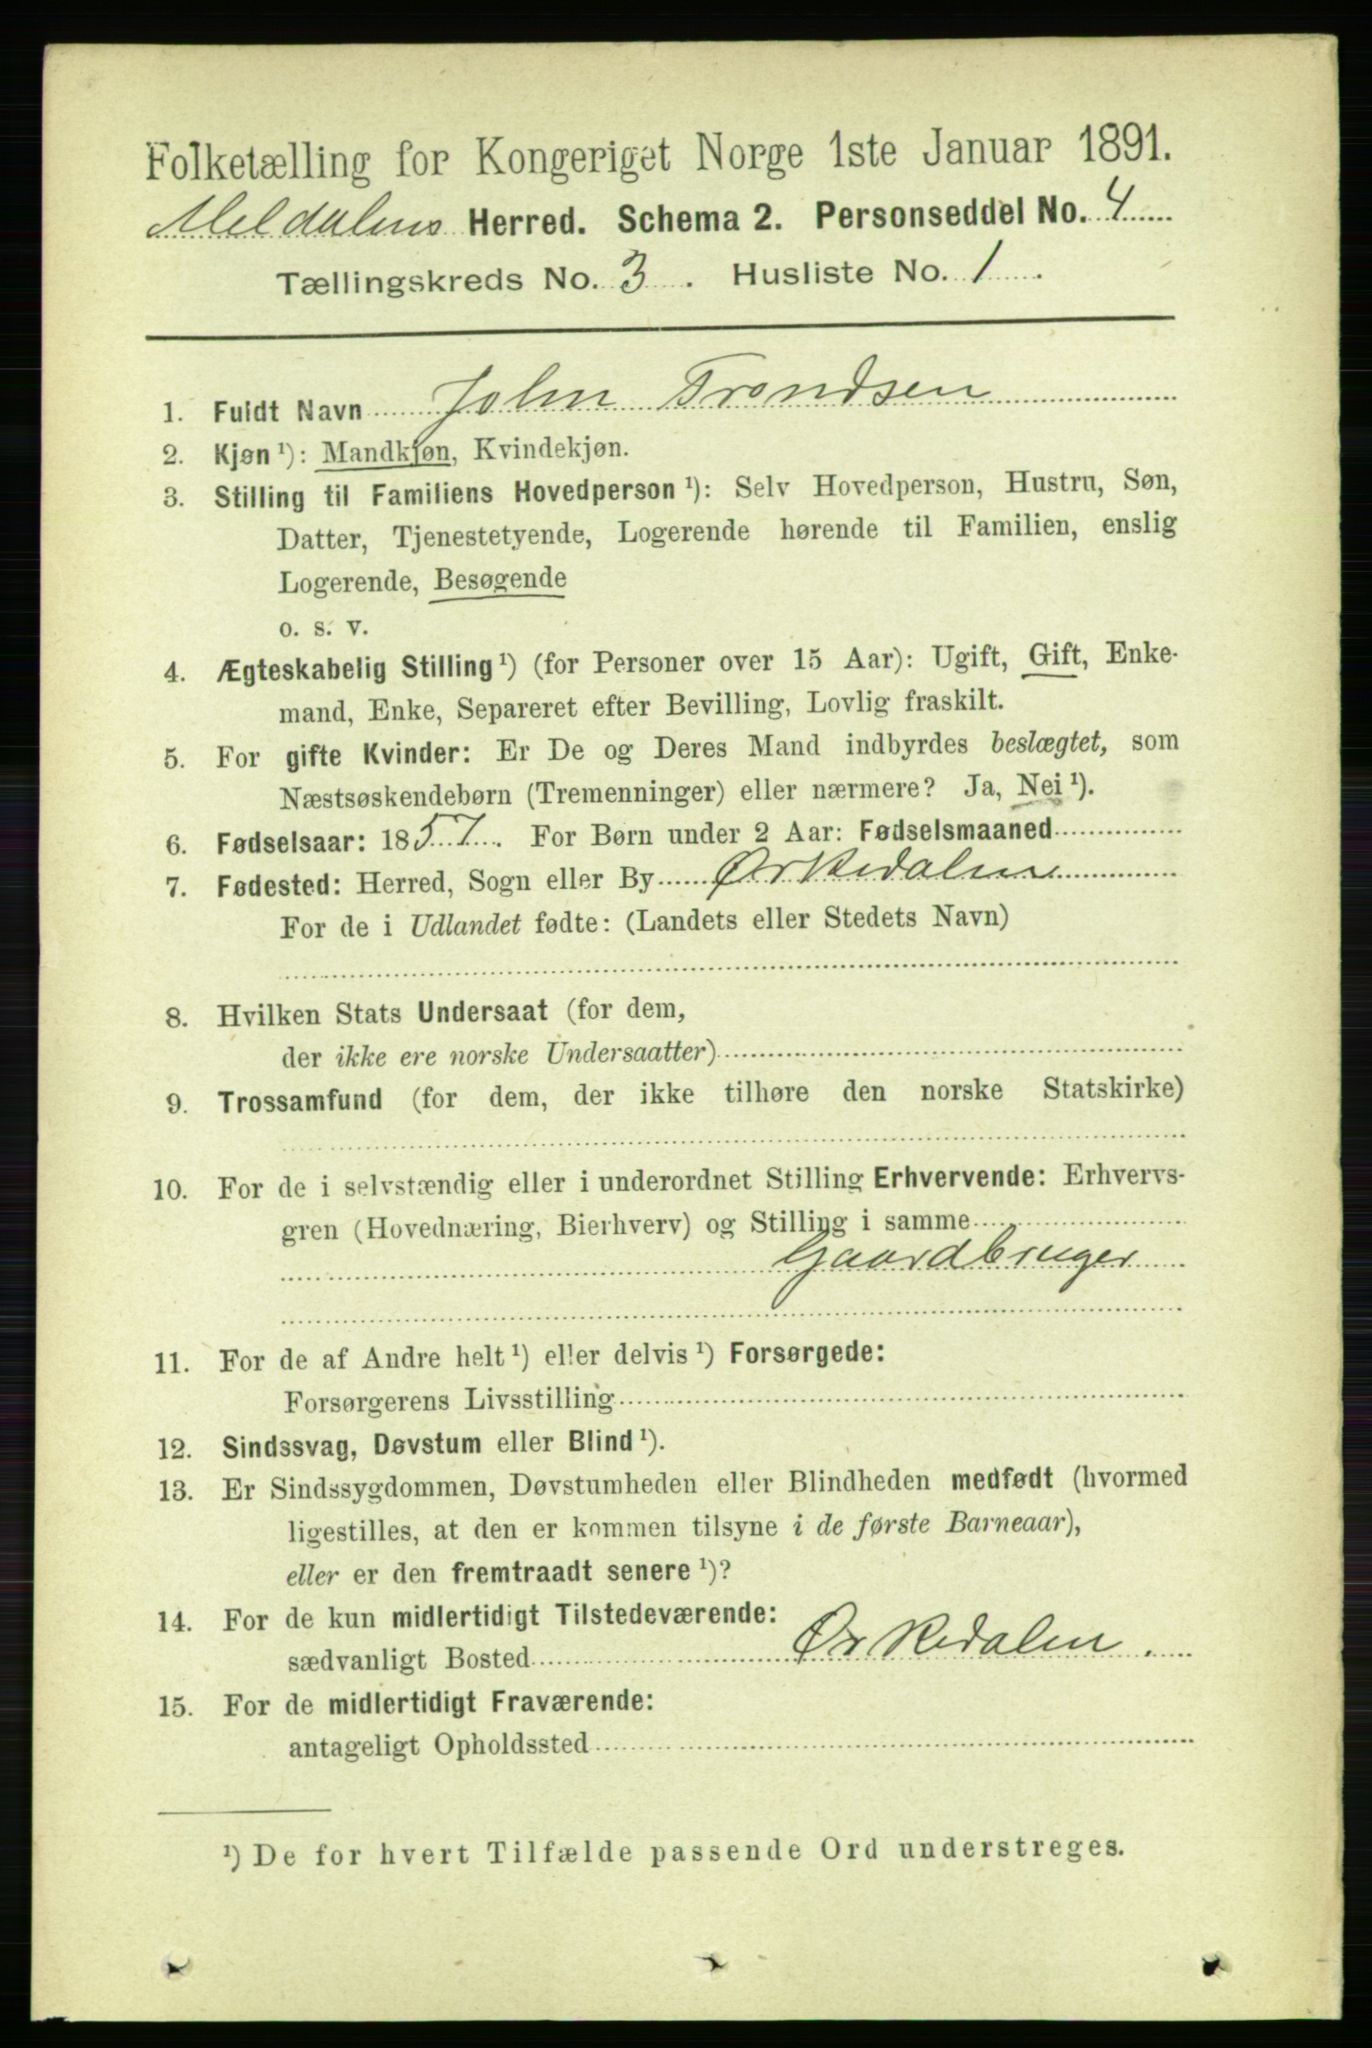 Folketælling for Kongeriget Norge 1ste Januar 1891.
Meldalens Herred. Schema 2. Personseddel No. 4
Tællingskreds No. 3. Husliste No. 1.
1. Fuldt Navn John Trondsen
2. Kjøn ¹): Mandkjøn, Kvindekjøn.
3. Stilling til Familiens Hovedperson ¹): Selv Hovedperson, Hustru, Søn,
Datter, Tjenestetyende, Logerende hørende til Familien, enslig
Logerende, Besøgende
o. s. v.
4. Ægteskabelig Stilling ¹) (for Personer over 15 Aar): Ugift, Gift, Enke-
mand, Enke, Separeret efter Bevilling, Lovlig fraskilt.
5. For gifte Kvinder: Er De og Deres Mand indbyrdes beslægtet, som
Næstsøskendebørn (Tremenninger) eller nærmere? Ja, Nei ¹).
6. Fødselsaar: 1857. For Børn under 2 Aar: Fødselsmaaned
7. Fødested: Herred, Sogn eller By Ørkedalen
For de i Udlandet fødte: (Landets eller Stedets Navn)
8. Hvilken Stats Undersaat (for dem,
der ikke ere norske Undersaatter)
9. Trossamfund (for dem, der ikke tilhøre den norske Statskirke)
10. For de i selvstændig eller i underordnet Stilling Erhvervende: Erhvervs-
gren (Hovednæring, Bierhverv) og Stilling i samme
Gaardbruger
11. For de af Andre helt ¹) eller delvis ¹) Forsørgede:
Forsørgerens Livsstilling
12. Sindssvag, Døvstum eller Blind ¹).
13. Er Sindssygdommen, Døvstumheden eller Blindheden medfødt (hvormed
ligestilles, at den er kommen tilsyne i de første Barneaar),
eller er den fremtraadt senere ¹)?
14. For de kun midlertidigt Tilstedeværende:
sædvanligt Bosted Ørkedalen.
15. For de midlertidigt Fraværende:
antageligt Opholdssted
¹) De for hvert Tilfælde passende Ord understreges.